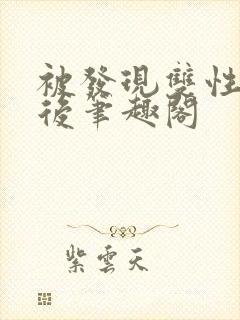 被發現雙性
後筆趣閣
紫雲天